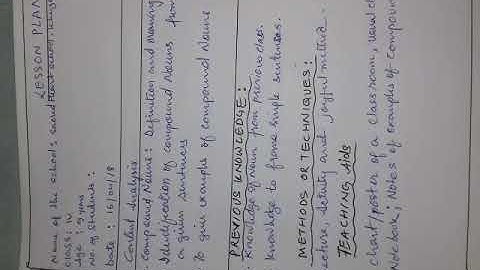 LESSON PLAN
Name of the school: Sacred Heart School,
Class: IV
Age: 9 years
No. of Students:
Date: 16/04/18
Content Analysis
Compound Nouns: Definition and meaning
Identification of compound Nouns from
a given sentences
To give examples of compound Nouns
PREVIOUS KNOWLEDGE:
Knowledge of Noun from previous class.
Knowledge to frame simple sentences.
METHODS OR TECHNIQUES:
Lecture, activity and joyful method.
TEACHING Aids
chart/poster of a classroom, usual
Notebook, Notes of examples of compound